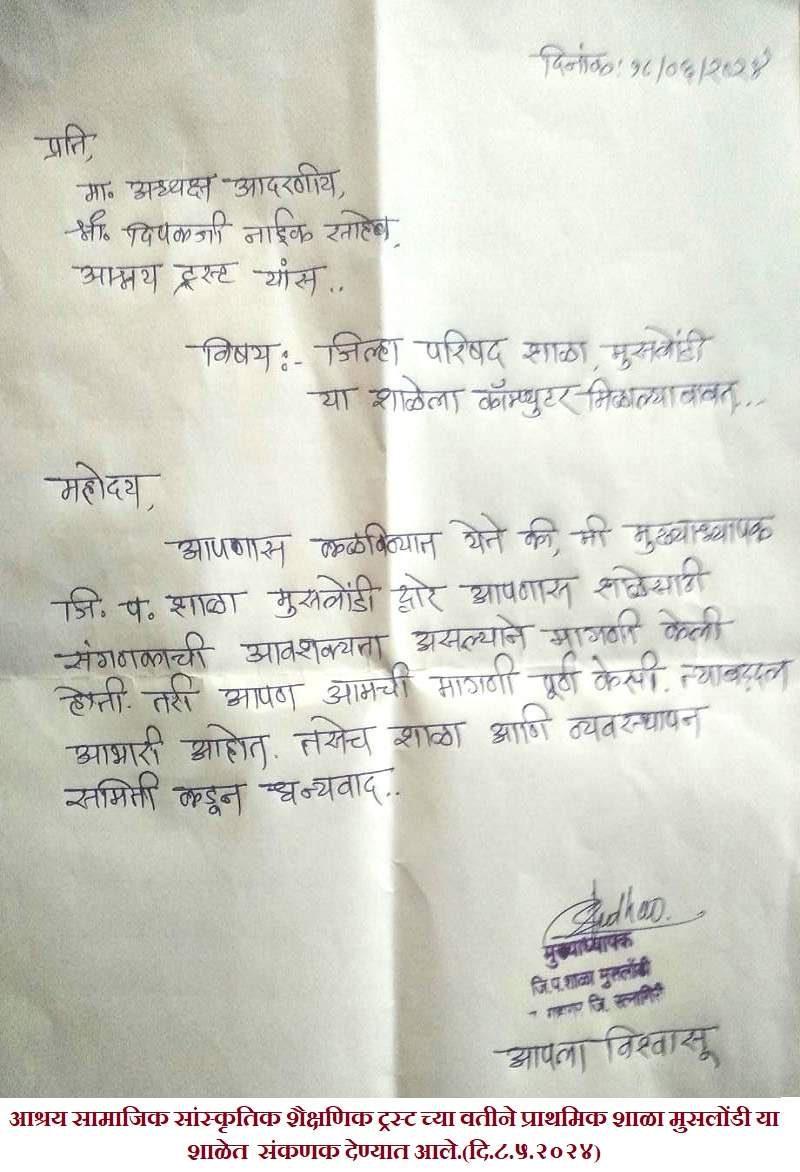 दिनांक: १८/०६/२०२४
प्रति,
मा. अध्यक्ष आदरणीय,
श्री. दिपकजी नाईक साहेब,
आश्रय ट्रस्ट यांस..
विषय:- जिल्हा परिषद शाळा, मुसलोंडी
या शाळेला कॉम्प्युटर मिळाल्याबाबत...
महोदय,
आपणास कळविण्यात येते की, मी मुख्याध्यापक
जि. प. शाळा मुसलोंडी द्वारे आपणास शाळेसाठी
संगणकाची आवशक्यता असल्याने मागणी केली
होती. तरी आपण आमची मागणी पूर्ण केली. त्याबद्दल
आभारी आहोत. तसेच शाळा आणि व्यवस्थापन
समिती कडून धन्यवाद..
मुख्याध्यापक
जि.प.शाळा मुसलोंडी
जि. रत्नागिरी
आपला विश्वासू
आश्रय सामाजिक सांस्कृतिक शैक्षणिक ट्रस्ट च्या वतीने प्राथमिक शाळा मुसलोंडी या
शाळेत संकणक देण्यात आले.(दि.८.५.२०२४)